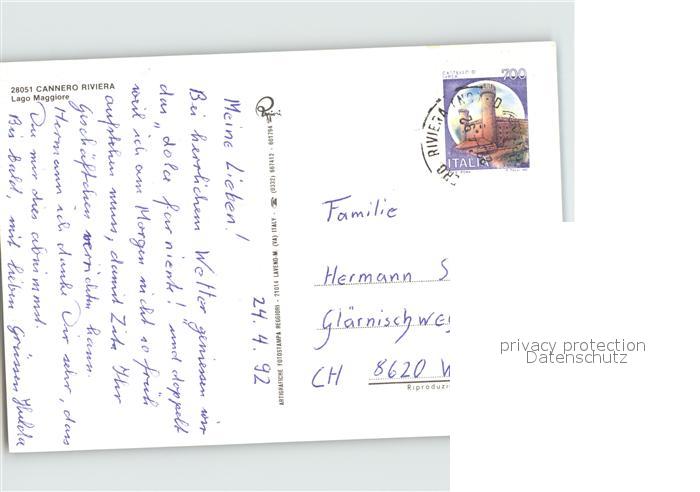 28051 CANNERO RIVIERA
Lago Maggiore
24. 4. 92
Meine Lieben!
Bei herrlichem Wetter geniessen wir
das "dolce far niente! und doppelt
weil ich am Morgen nicht so früh
aufstehen muss, damit Zita Ihr
Geschäftchen verrichten kann.
Hermann ich danke Dir sehr, dass
Du mir dies abnimmst.
Bis bald, mit lieben Grüssen Hulda
ARTIGRAFICHE FOTOSTAMPA REGGIORI - 21014 LAVENO-M. (VA) ITALY - ☎ (0332) 667412 - 001794
CASTELLO DI
700
ITALIA
RIVIERA
Familie
Hermann S
Glärnischweg
CH 8620 W
Riproduzi
privacy protection
Datenschutz